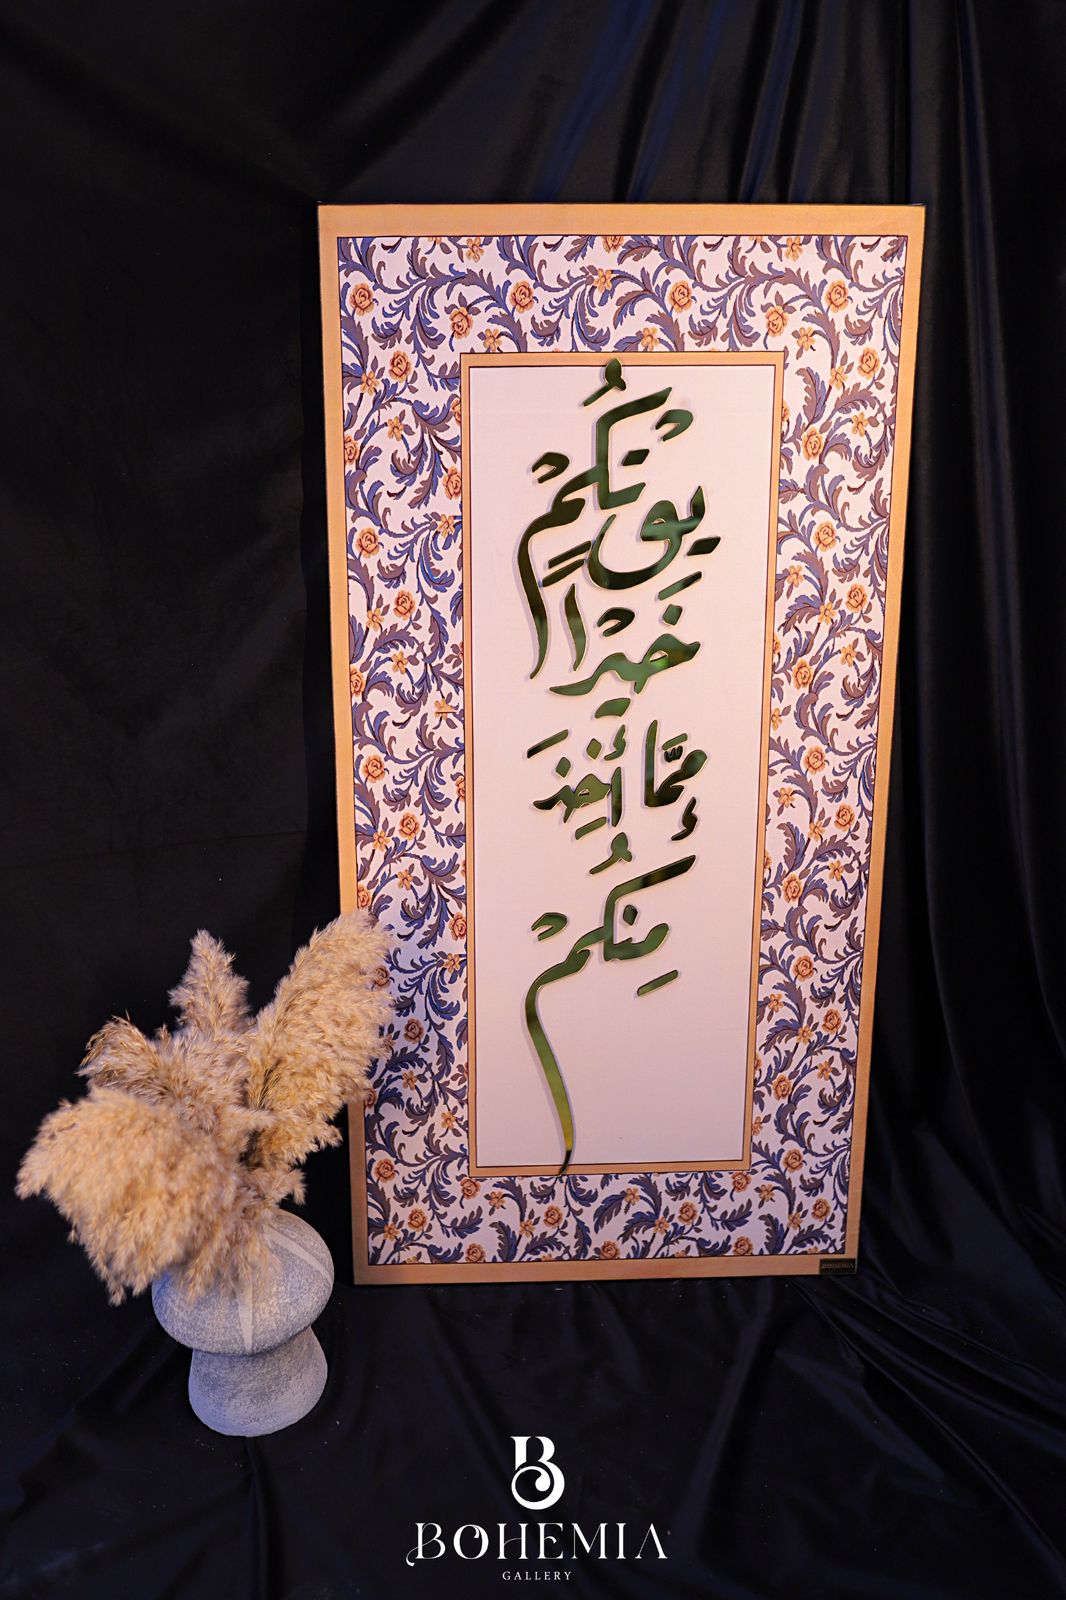 يؤتكم
خيرا
مما أخذ
منكم
BOHEMIA
B
BOHEMIA
GALLERY